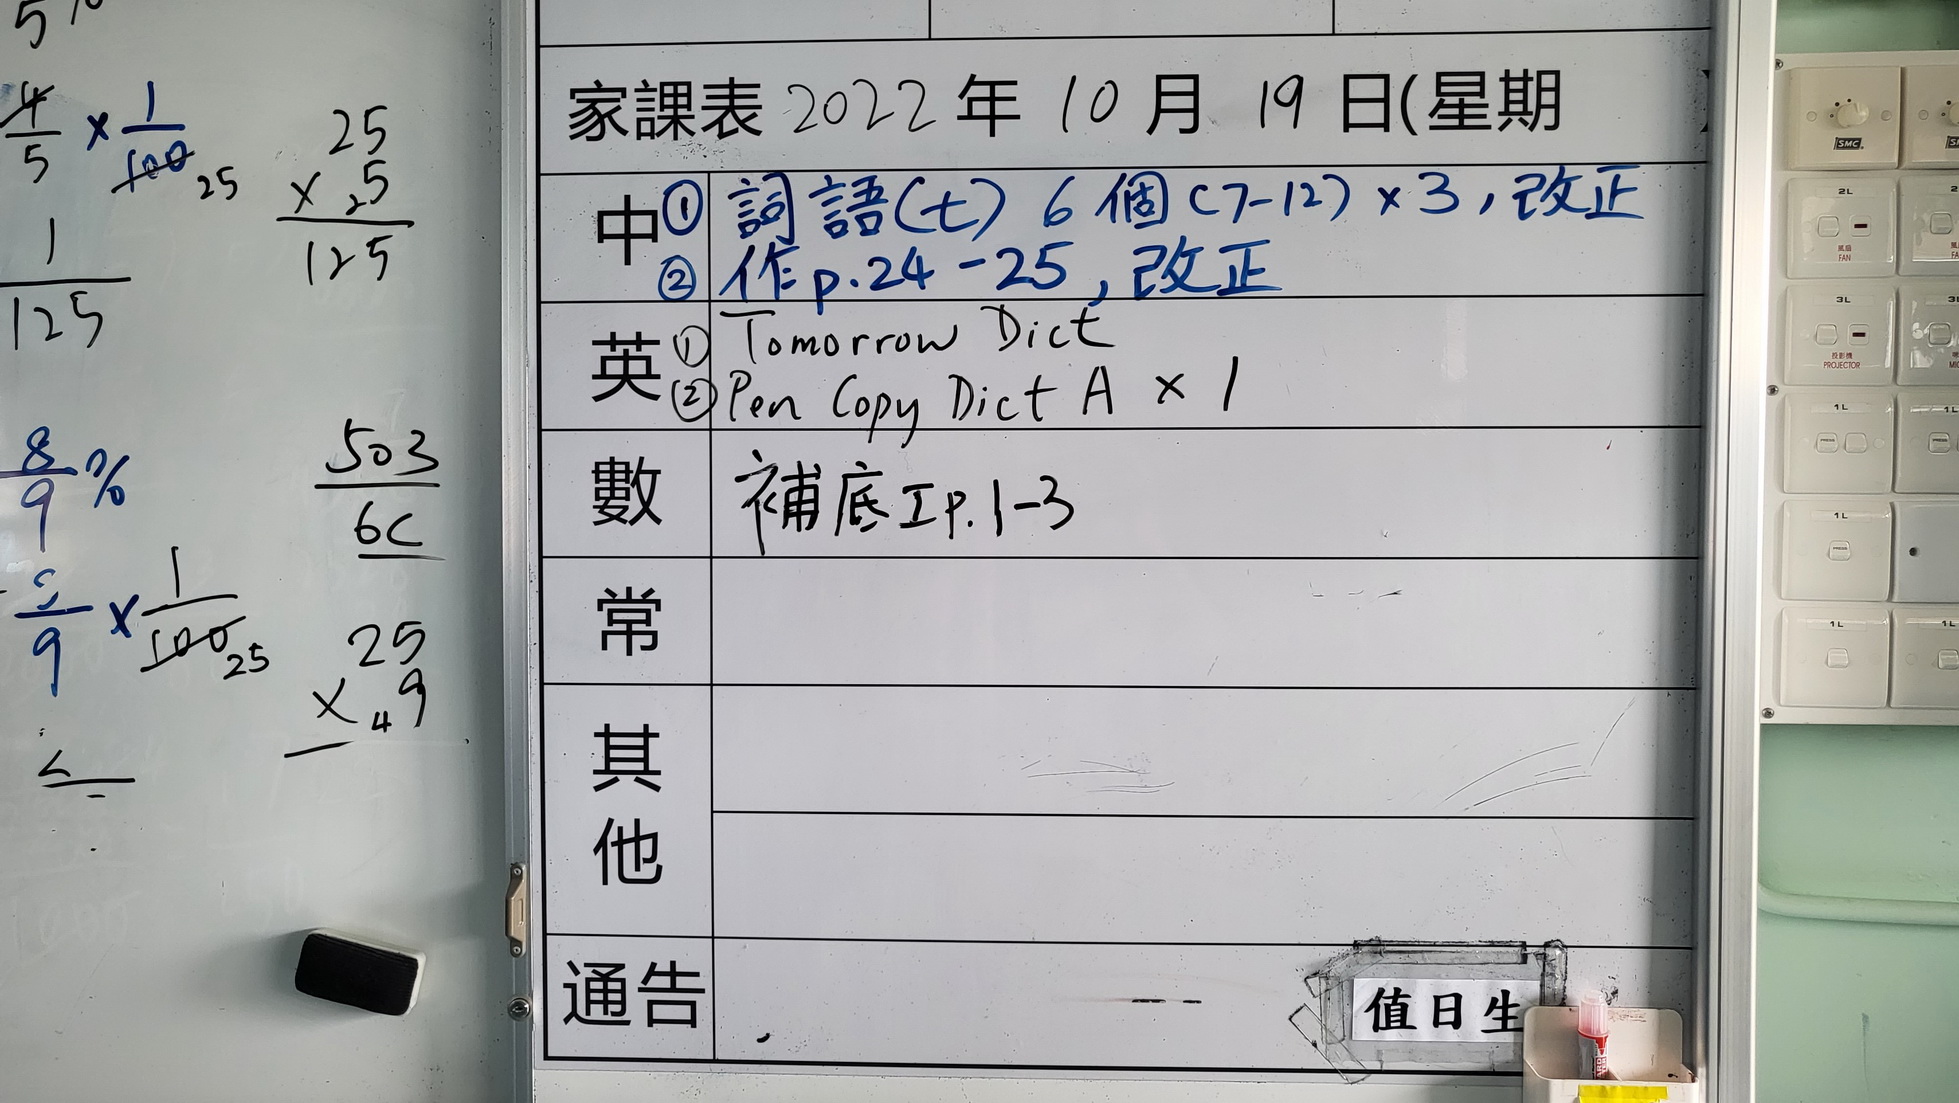 5%
4/5 × 1/100 25
25
× 25
125
1/125
8/9 %
503
6C
/9 × 1/100 25
25
× 49
家課表 2022 年 10 月 19 日(星期 )
中 ① 詞語(七) 6 個 (7-12) × 3, 改正
② 作 p.24-25, 改正
英 ① Tomorrow Dict
② Pen Copy Dict A × 1
數 補底工 p.1-3
常
其他
通告
值日生
SMC
2L
風扇
FAN
3L
投影機
PROJECTOR
1L
PRESS
PRESS
1L
PRESS
1L